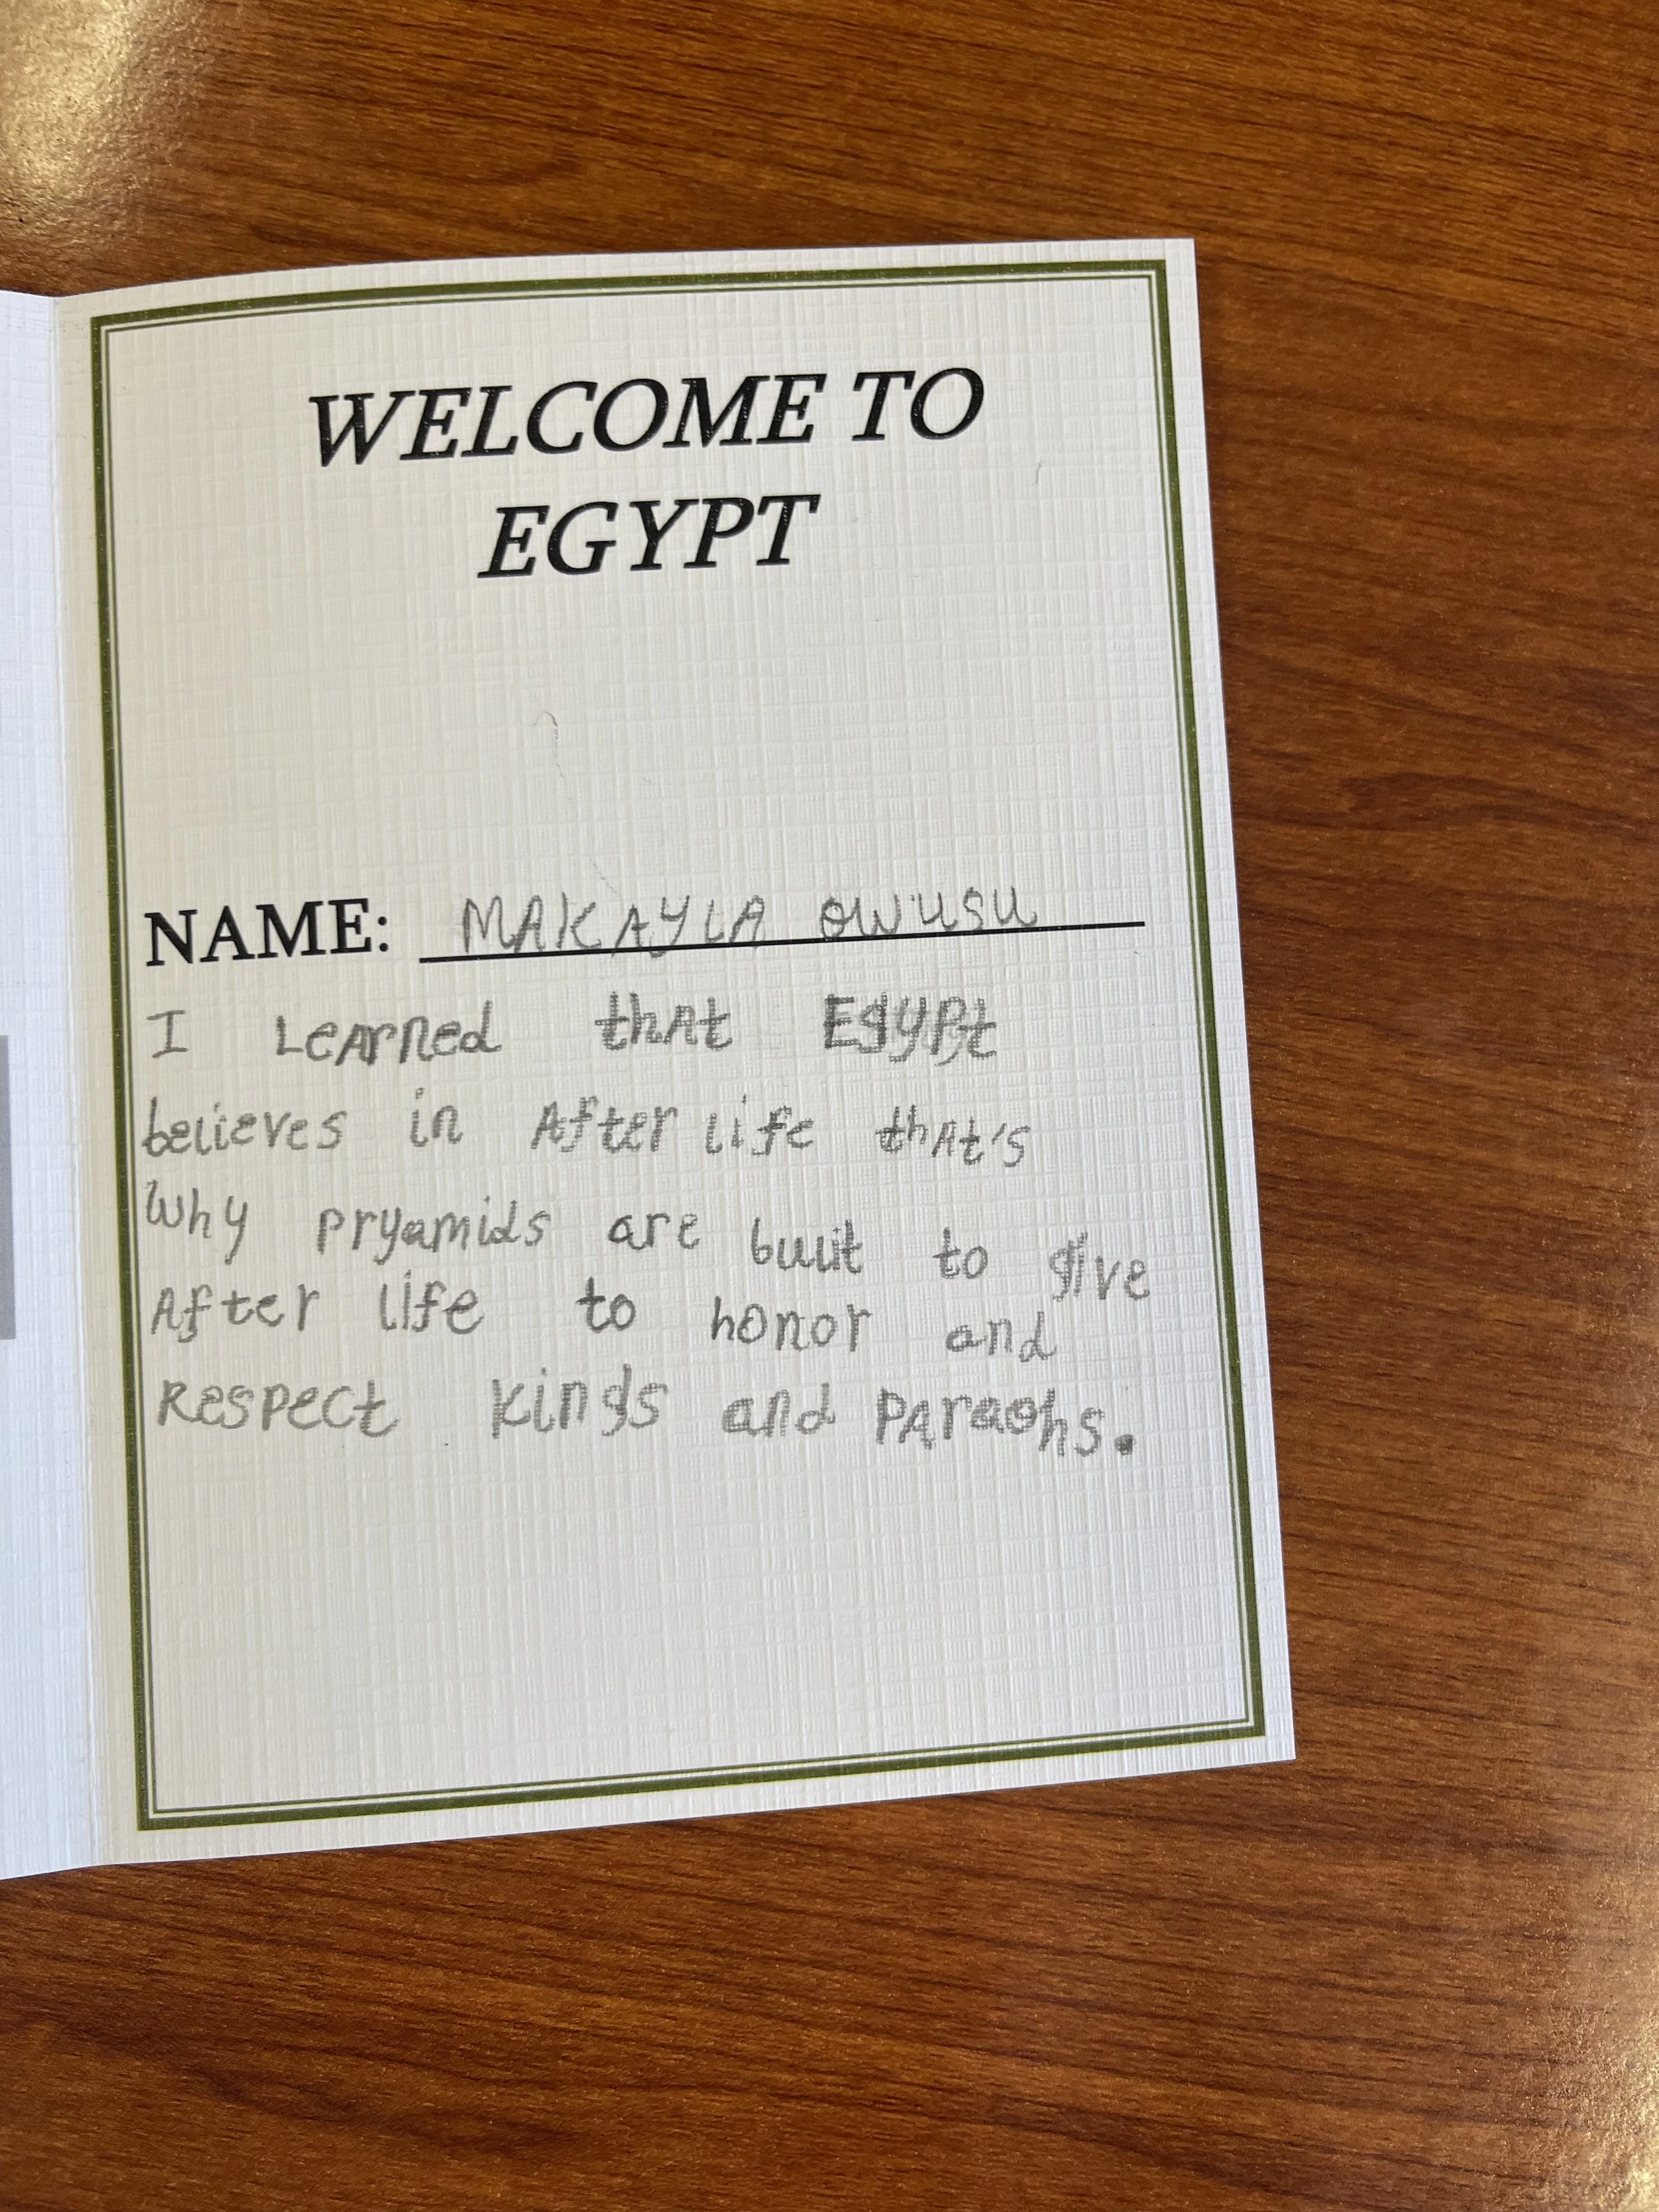 WELCOME TO
EGYPT
NAME: MAKAYLA OWUSU
I Learned thAt Egypt
believes in After life thAt's
Why pryamids are built to give
After life to honor and
Respect kings and PAraohs.